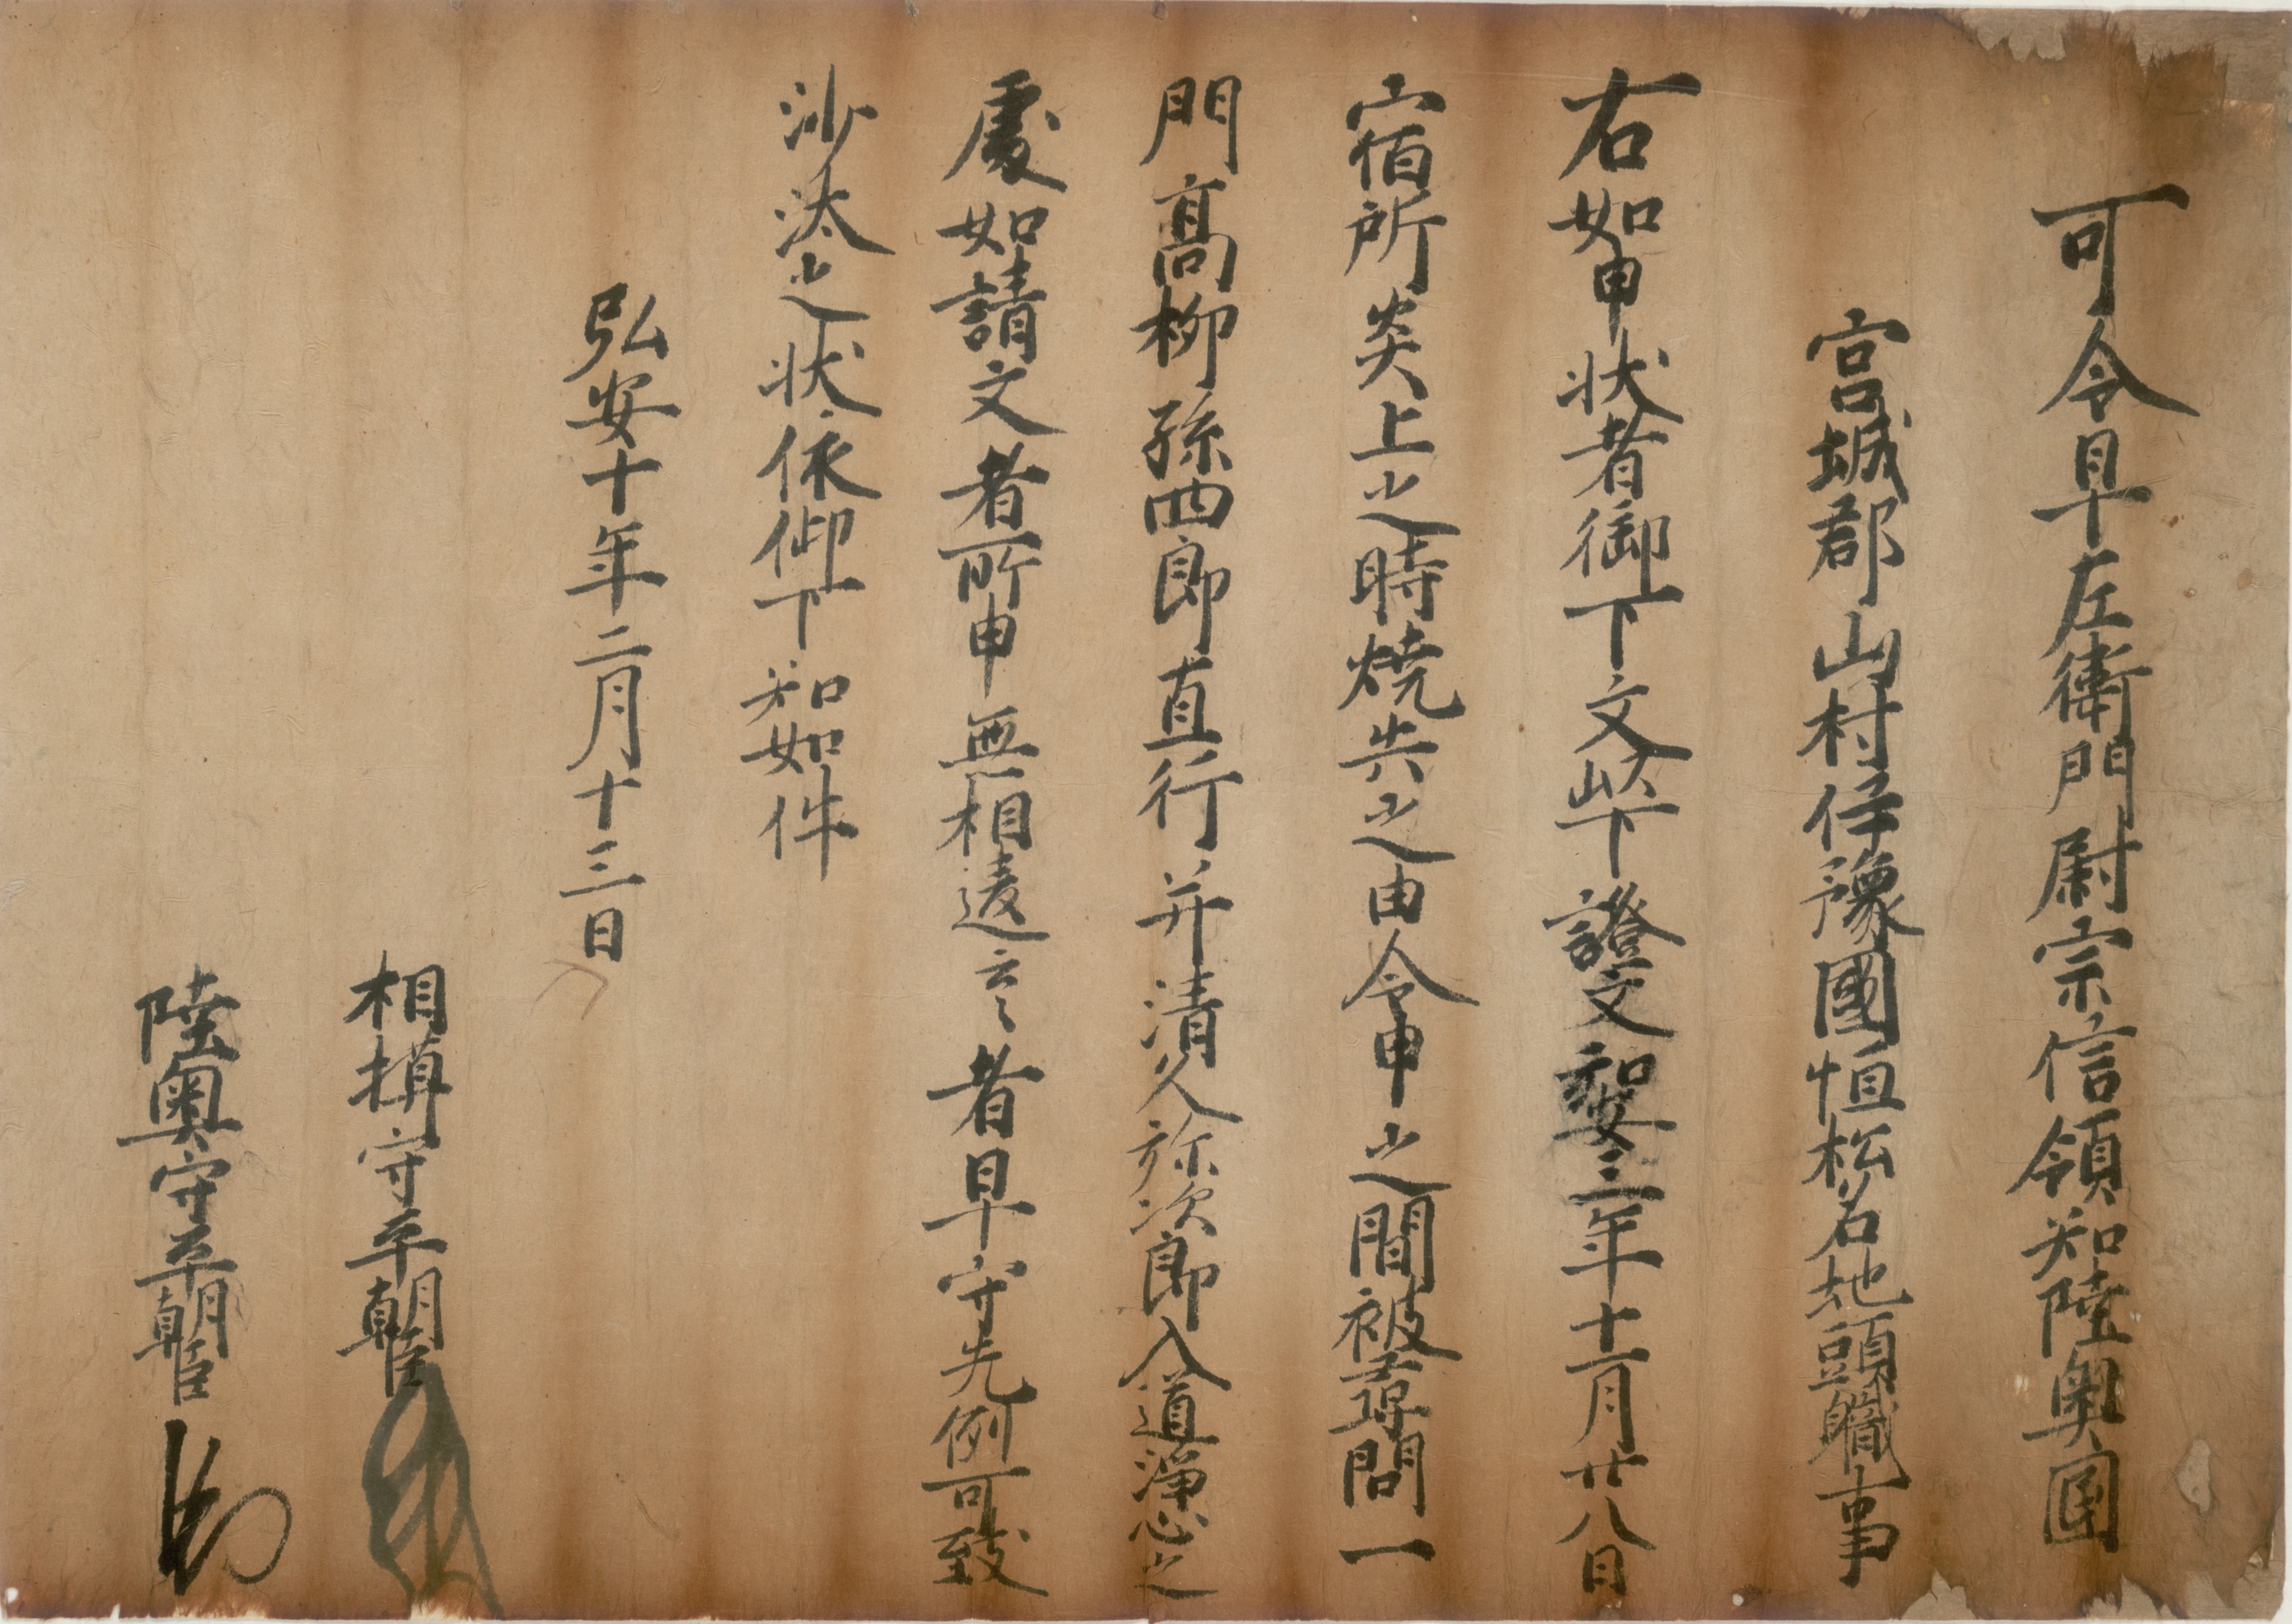 可令早左衛門尉宗信領知陸奥国
宮城郡山村伊豫國恒松名地頭職事
右如申状者御下文以下證文弘安三年十一月廿八日
宿所炎上之時焼失之由令申之間被尋問一
門高柳孫四郎直行并清久弥次郎入道浄心之
處如請文者所申無相違云々者早守先例可致
沙汰之状依仰下知如件
弘安十年二月十三日
相摸守平朝臣
陸奥守平朝臣